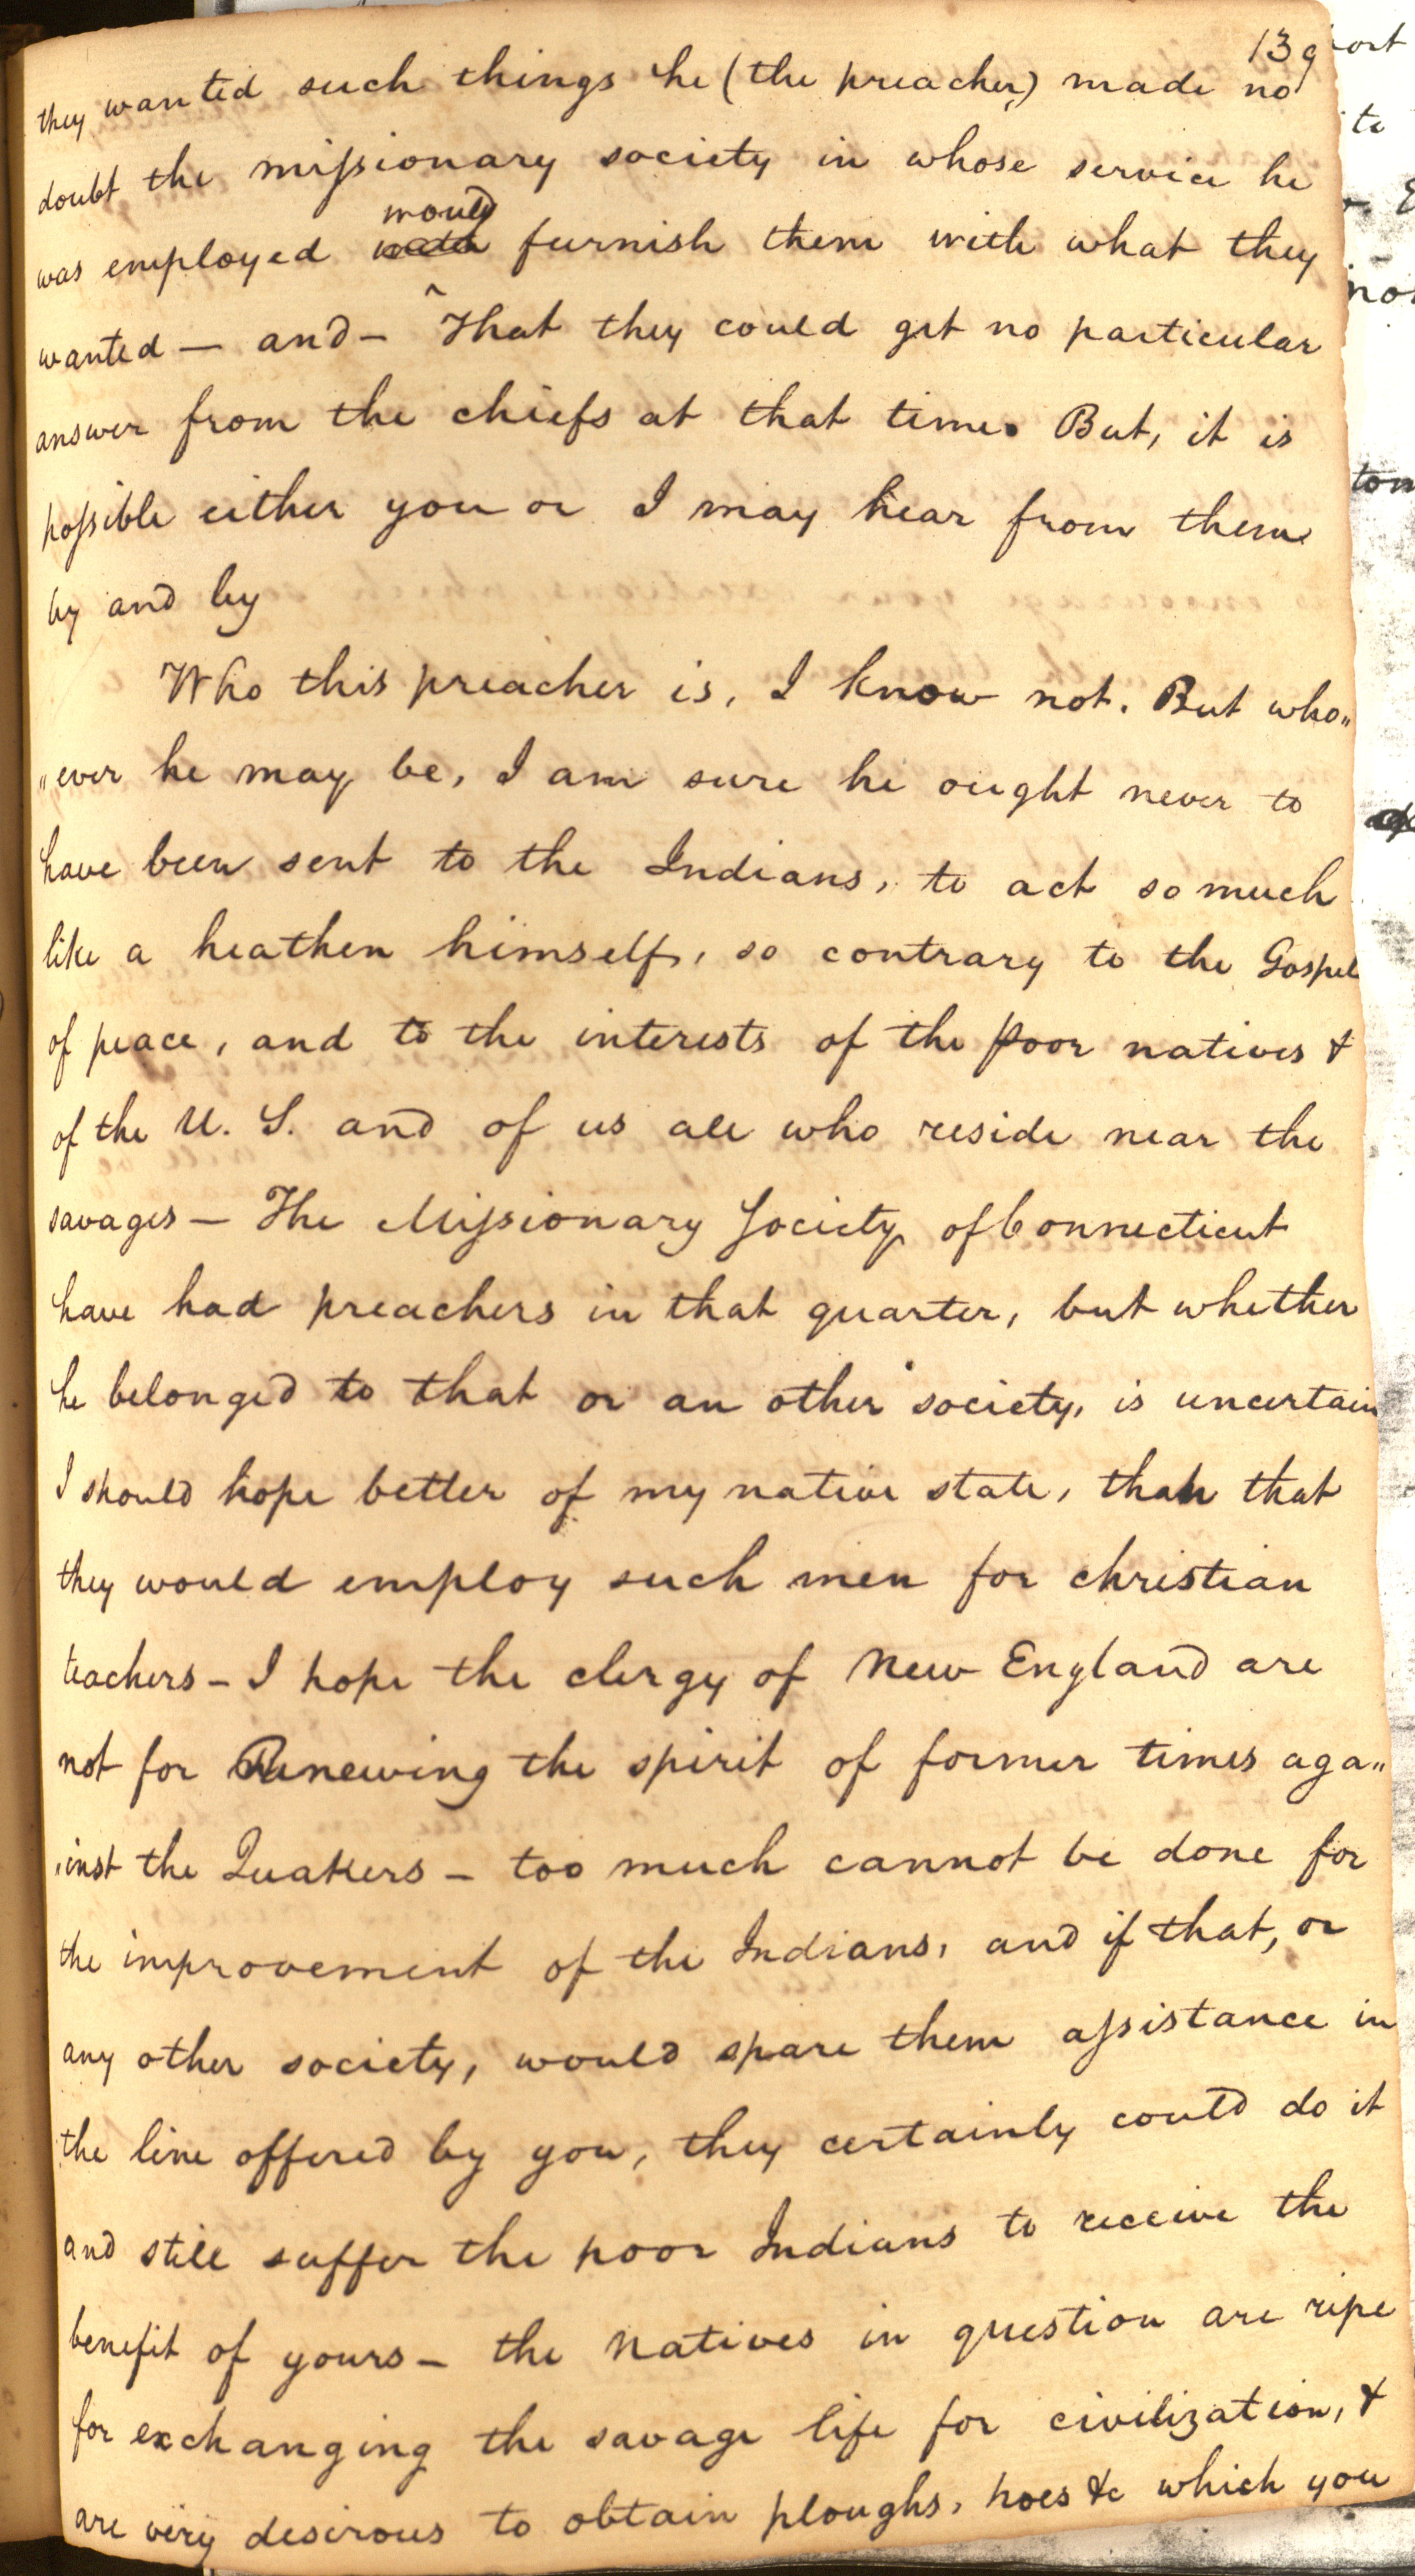 139
they wanted such things he (the preacher,) made no
doubt the missionary society in whose service he
would
was employed furnish them with what they
wanted — and — That they could get no particular
answer from the chiefs at that time. But, it is
possible either you or I may hear from them
by and by
Who this preacher is, I know not. But who„
„ever he may be, I am sure he ought never to
have been sent to the Indians, to act so much
like a heathen himself, so contrary to the Gospel
of peace, and to the interests of the poor natives &
of the U. S. and of us all who reside near the
savages — The Missionary Society of Connecticut
have had preachers in that quarter, but whether
he belonged to that or an other society, is uncertain
I should hope better of my native state, than that
they would employ such men for christian
teachers — I hope the clergy of New England are
not for Renewing the spirit of former times aga„
„inst the Quakers — too much cannot be done for
the improvement of the Indians, and if that, or
any other society, would spare them assistance in
the line offered by you, they certainly could do it
and still suffer the poor Indians to receive the
benefit of yours — the Natives in question are ripe
for exchanging the savage life for civilization, &
are very desirous to obtain ploughs, hoes &c which you